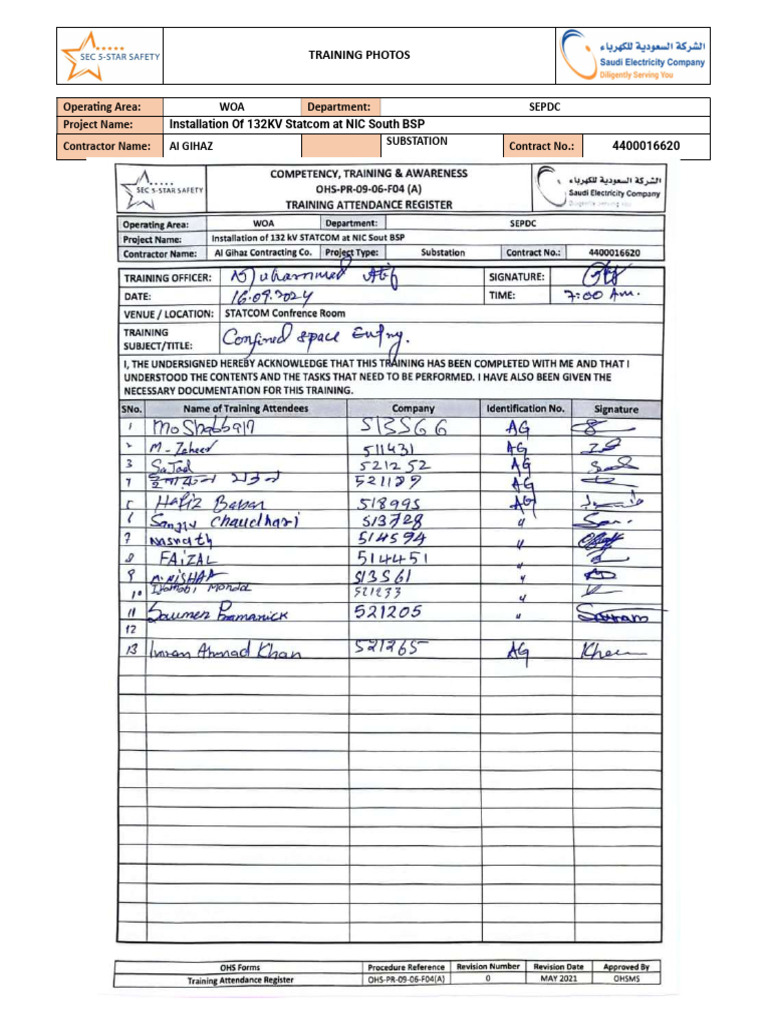 SEC 5-STAR SAFETY
TRAINING PHOTOS
الشركة السعودية للكهرباء
Saudi Electricity Company
Diligently Serving You
Operating Area: WOA Department: SEPDC
Project Name: Installation Of 132KV Statcom at NIC South BSP
Contractor Name: Al GIHAZ SUBSTATION Contract No.: 4400016620
SEC 5-STAR SAFETY
COMPETENCY, TRAINING & AWARENESS
OHS-PR-09-06-F04 (A)
TRAINING ATTENDANCE REGISTER
الشركة السعودية للكهرباء
Saudi Electricity Company
Diligently Serving You
Operating Area: WOA Department: SEPDC
Project Name: Installation of 132 kV STATCOM at NIC Sout BSP
Contractor Name: Al Gihaz Contracting Co. Project Type: Substation Contract No.: 4400016620
TRAINING OFFICER: Muhammed Atif SIGNATURE:
DATE: 16.09.2024 TIME: 7:00 Am.
VENUE / LOCATION: STATCOM Confrence Room
TRAINING SUBJECT/TITLE: Confined space Entry.
I, THE UNDERSIGNED HEREBY ACKNOWLEDGE THAT THIS TRAINING HAS BEEN COMPLETED WITH ME AND THAT I
UNDERSTOOD THE CONTENTS AND THE TASKS THAT NEED TO BE PERFORMED. I HAVE ALSO BEEN GIVEN THE
NECESSARY DOCUMENTATION FOR THIS TRAINING.
SNo. Name of Training Attendees Company Identification No. Signature
1 513566 AG
2 M-Zaheer 511431 AG
3 Sajad 521252 AG
521129 AG
Hafiz Baban 518995 AG
6 Sanjiv Chaudhari 513728 "
7 Nasrath 514594 "
8 FAIZAL 514451 "
9 513561 "
10 521233 "
11 Saumen Pramanick 521205 "
12
13 Imran Ahmad Khan 521265 AG Khan
OHS Forms Procedure Reference Revision Number Revision Date Approved By
Training Attendance Register OHS-PR-09-06-F04(A) 0 MAY 2021 OHSMS